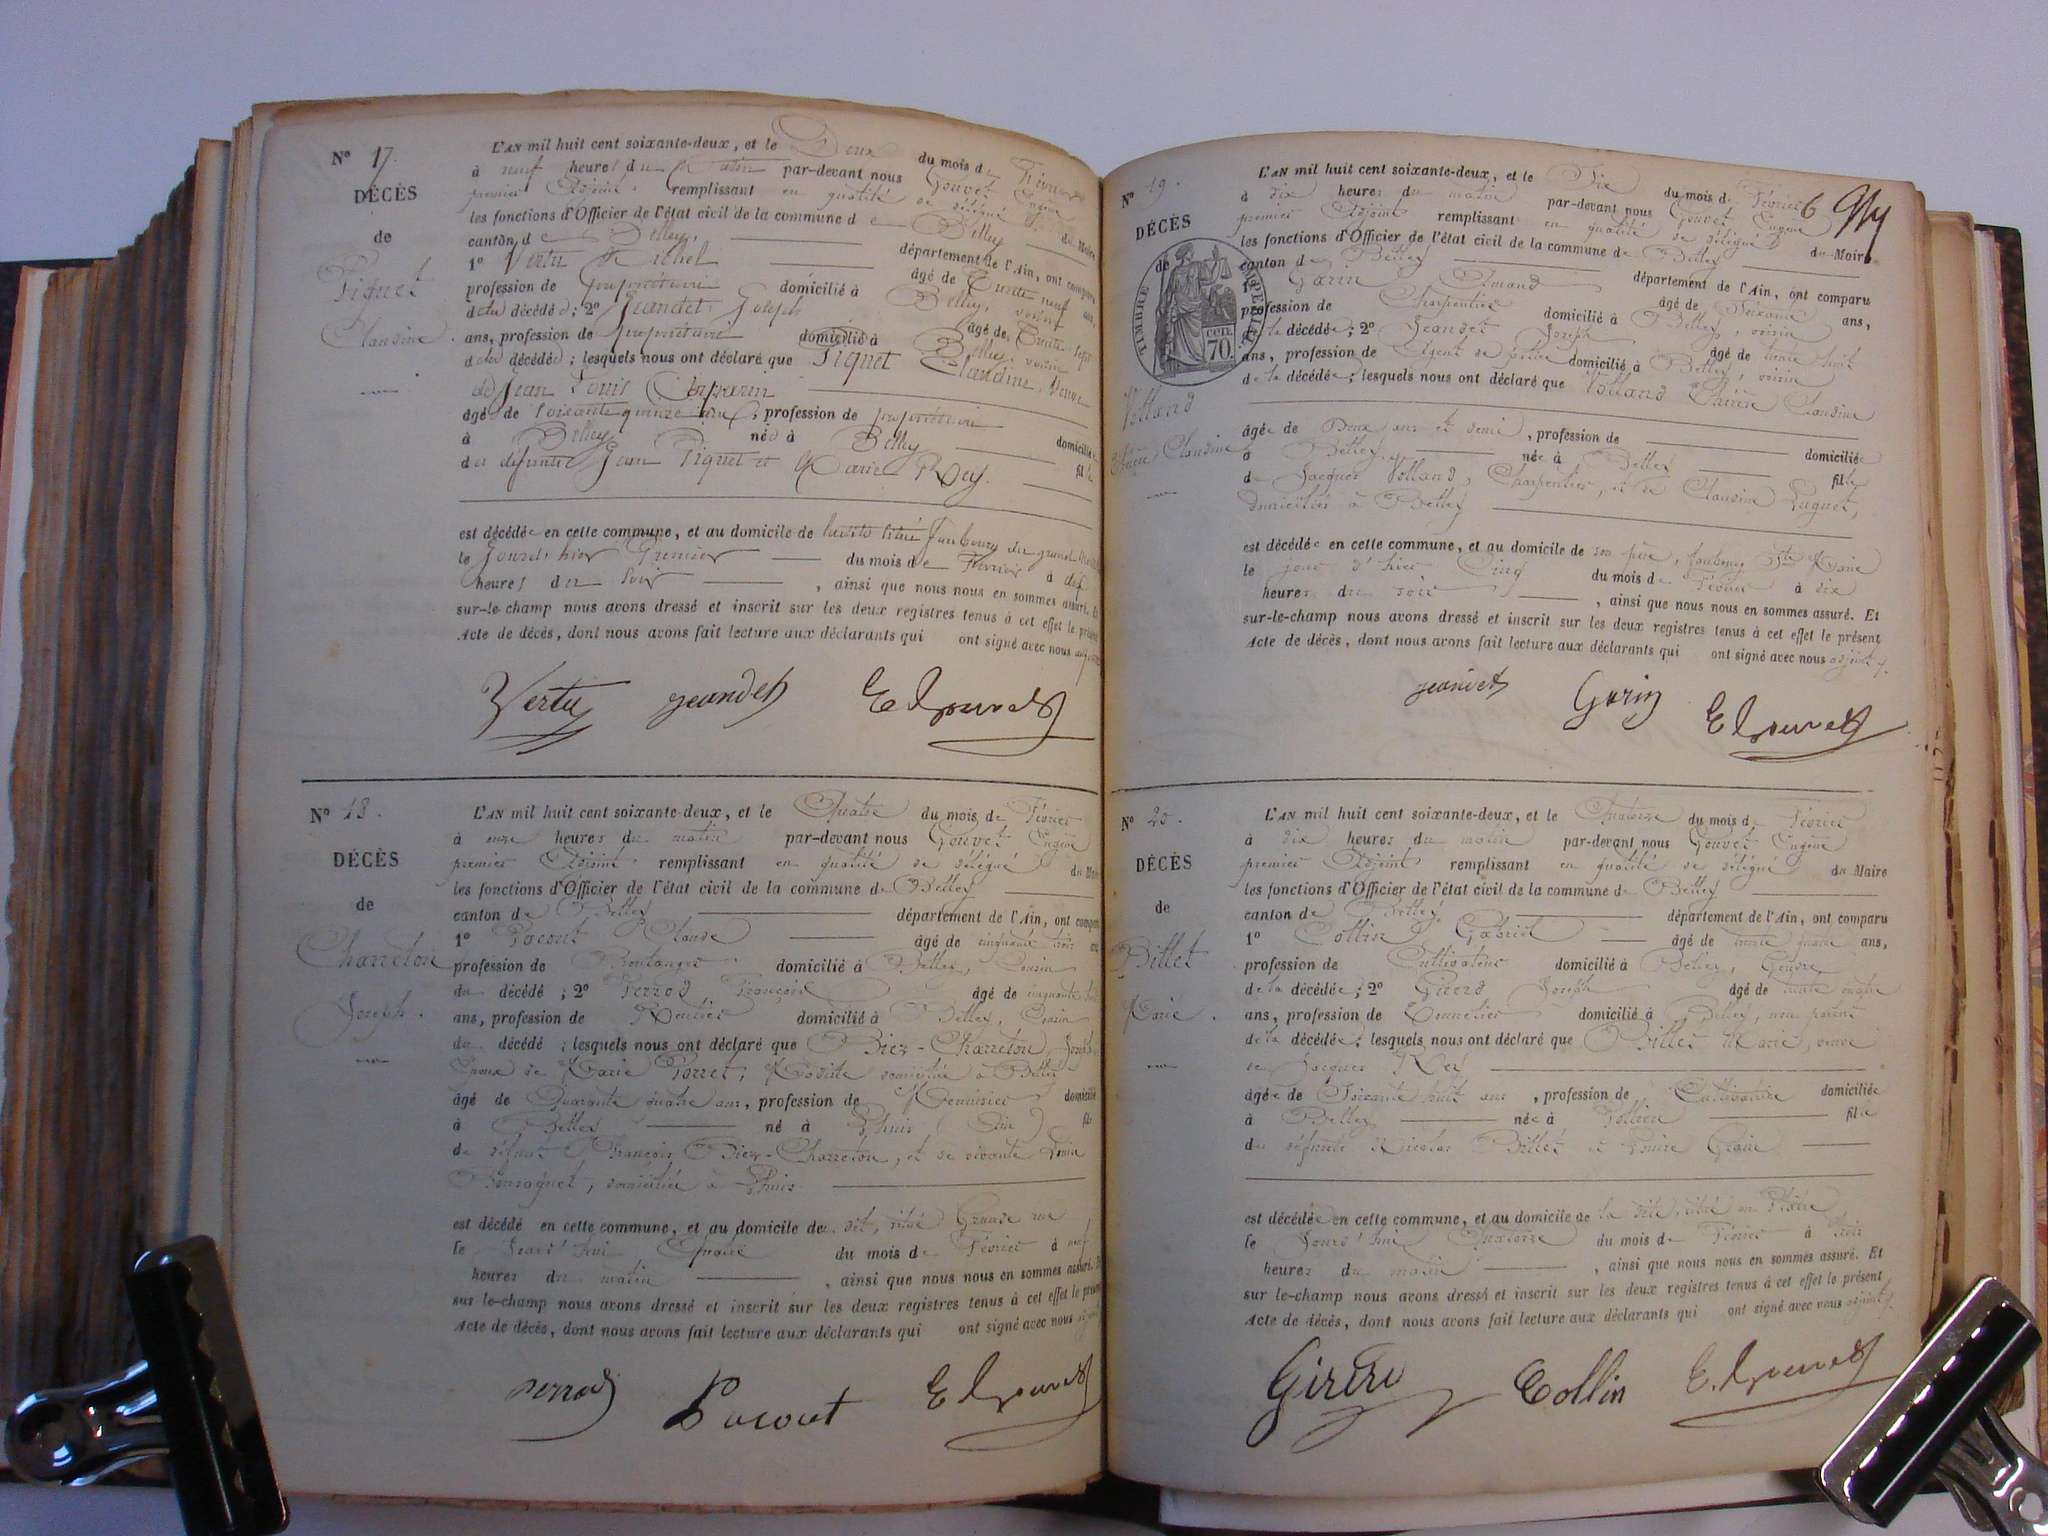 N° 17.
DÉCÈS
de
Piquet
Claudine.
L'AN mil huit cent soixante-deux, et le Deux du mois de Février
à neuf heures du Matin par-devant nous Gouvet Eugène
premier Adjoint remplissant en qualité de délégué du Maire
les fonctions d'Officier de l'état civil de la commune de Belley
canton de Belley, département de l'Ain, ont comparu
1° Vertu Michel âgé de Trente neuf ans,
profession de propriétaire domicilié à Belley, voisin
de la décédée; 2° Jeandet Joseph âgé de Trente sept
ans, profession de propriétaire domicilié à Belley, voisin
de la décédée; lesquels nous ont déclaré que Piquet Claudine, Veuve
de Jean Louis
âgée de soixante quinze ans, profession de propriétaire domiciliée
à Belley née à Belley fille
des défunts Jean Piquet et Marie Rey.
est décédée en cette commune, et au domicile de faubourg du grand
le Jourd'hier Premier du mois de Février à
heures du soir, ainsi que nous nous en sommes assuré. Et
sur-le-champ nous avons dressé et inscrit sur les deux registres tenus à cet effet le présent
Acte de décès, dont nous avons fait lecture aux déclarants qui ont signé avec nous adjoint
Vertu jeandet E Gouvet
N° 18.
DÉCÈS
de
Charreton
Joseph.
L'AN mil huit cent soixante-deux, et le Quatre du mois de Février
à onze heures du matin par-devant nous Gouvet Eugène
premier Adjoint remplissant en qualité de délégué du Maire
les fonctions d'Officier de l'état civil de la commune de Belley
canton de Belley département de l'Ain, ont comparu
1° Pocout Claude âgé de cinquante trois ans
profession de Boulanger domicilié à Belley, Cousin
du décédé; 2° Perrod François âgé de cinquante
ans, profession de Rentier domicilié à Belley, Cousin
du décédé; lesquels nous ont déclaré que Biez-Charreton Joseph
Epoux de Marie Porret, Modiste domiciliée à Belley
âgé de Quarante quatre ans, profession de Menuisier domicilié
à Belley né à Lhuis (Ain) fils
de défunt François Biez-Charreton, et de vivante Louise
domiciliée à Lhuis
est décédé en cette commune, et au domicile du dit, situé Grande rue
le Jourd'hui Quatre du mois de Février à neuf
heures du matin, ainsi que nous nous en sommes assuré. Et
sur-le-champ nous avons dressé et inscrit sur les deux registres tenus à cet effet le présent
Acte de décès, dont nous avons fait lecture aux déclarants qui ont signé avec nous adjoint
perrod Pocout E Gouvet
6
N° 19.
DÉCÈS
de
TIMBRE IMPÉRIAL
CEN. 70.
Volland
Claudine
L'AN mil huit cent soixante-deux, et le Six du mois de Février
à dix heures du matin par-devant nous Gouvet Eugène
premier Adjoint remplissant en qualité de délégué du Maire
les fonctions d'Officier de l'état civil de la commune de Belley
canton de Belley département de l'Ain, ont comparu
1° Garin Amand âgé de Soixante ans,
profession de Charpentier domicilié à Belley, voisin
de la décédée; 2° Jeandet Joseph âgé de trente huit
ans, profession de Agent de police domicilié à Belley, voisin
de la décédée; lesquels nous ont déclaré que Volland Claudine
âgée de Deux ans et demi, profession de domiciliée
à Belley, née à Belley fille
de Jacques Volland, Charpentier, et de Claudine Luquet,
domiciliés à Belley
est décédée en cette commune, et au domicile de son père, faubourg Ste Marie
le jour d'hier Cinq du mois de Février à dix
heures du soir, ainsi que nous nous en sommes assuré. Et
sur-le-champ nous avons dressé et inscrit sur les deux registres tenus à cet effet le présent
Acte de décès, dont nous avons fait lecture aux déclarants qui ont signé avec nous adjoint
jeandet Garin E Gouvet
N° 20.
DÉCÈS
de
Billet
Marie.
L'AN mil huit cent soixante-deux, et le Quatorze du mois de Février
à dix heures du matin par-devant nous Gouvet Eugène
premier Adjoint remplissant en qualité de délégué du Maire
les fonctions d'Officier de l'état civil de la commune de Belley
canton de Belley, département de l'Ain, ont comparu
1° Collin Gabriel âgé de trente quatre ans,
profession de Cultivateur domicilié à Belley, Gendre
de la décédée; 2° Girerd Joseph âgé de trente quatre
ans, profession de Tonnelier domicilié à Belley, non parent
de la décédée; lesquels nous ont déclaré que Billet Marie, veuve
de Jacques
âgée de Soixante huit ans, profession de Cultivatrice domiciliée
à Belley née à Pollieu fille
des défunts Nicolas Billet et Louise
est décédée en cette commune, et au domicile de la dite, situé en
le Jourd'hui Quatorze du mois de Février à
heures du matin, ainsi que nous nous en sommes assuré. Et
sur-le-champ nous avons dressé et inscrit sur les deux registres tenus à cet effet le présent
Acte de décès, dont nous avons fait lecture aux déclarants qui ont signé avec nous adjoint
Girerd Collin E. Gouvet